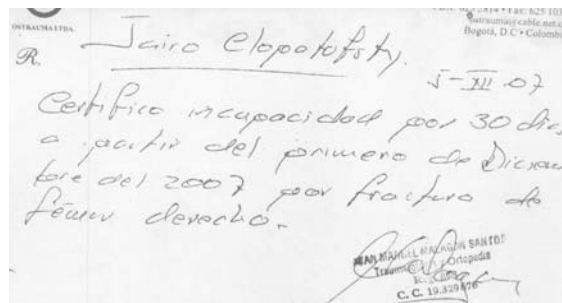 OSTRAUMA LTDA.
Fax: 625 103
ostrauma@cable.net.c
Bogotá, D.C • Colombi
R.
Jairo Clopatofsky.
5-XII-07
Certifico incapacidad por 30 dias
a partir del primero de Diciem
bre del 2007 por fractura de
fémur derecho.
JUAN MANUEL MALAGON SANTOS
Ortopedia
C. C. 19.329